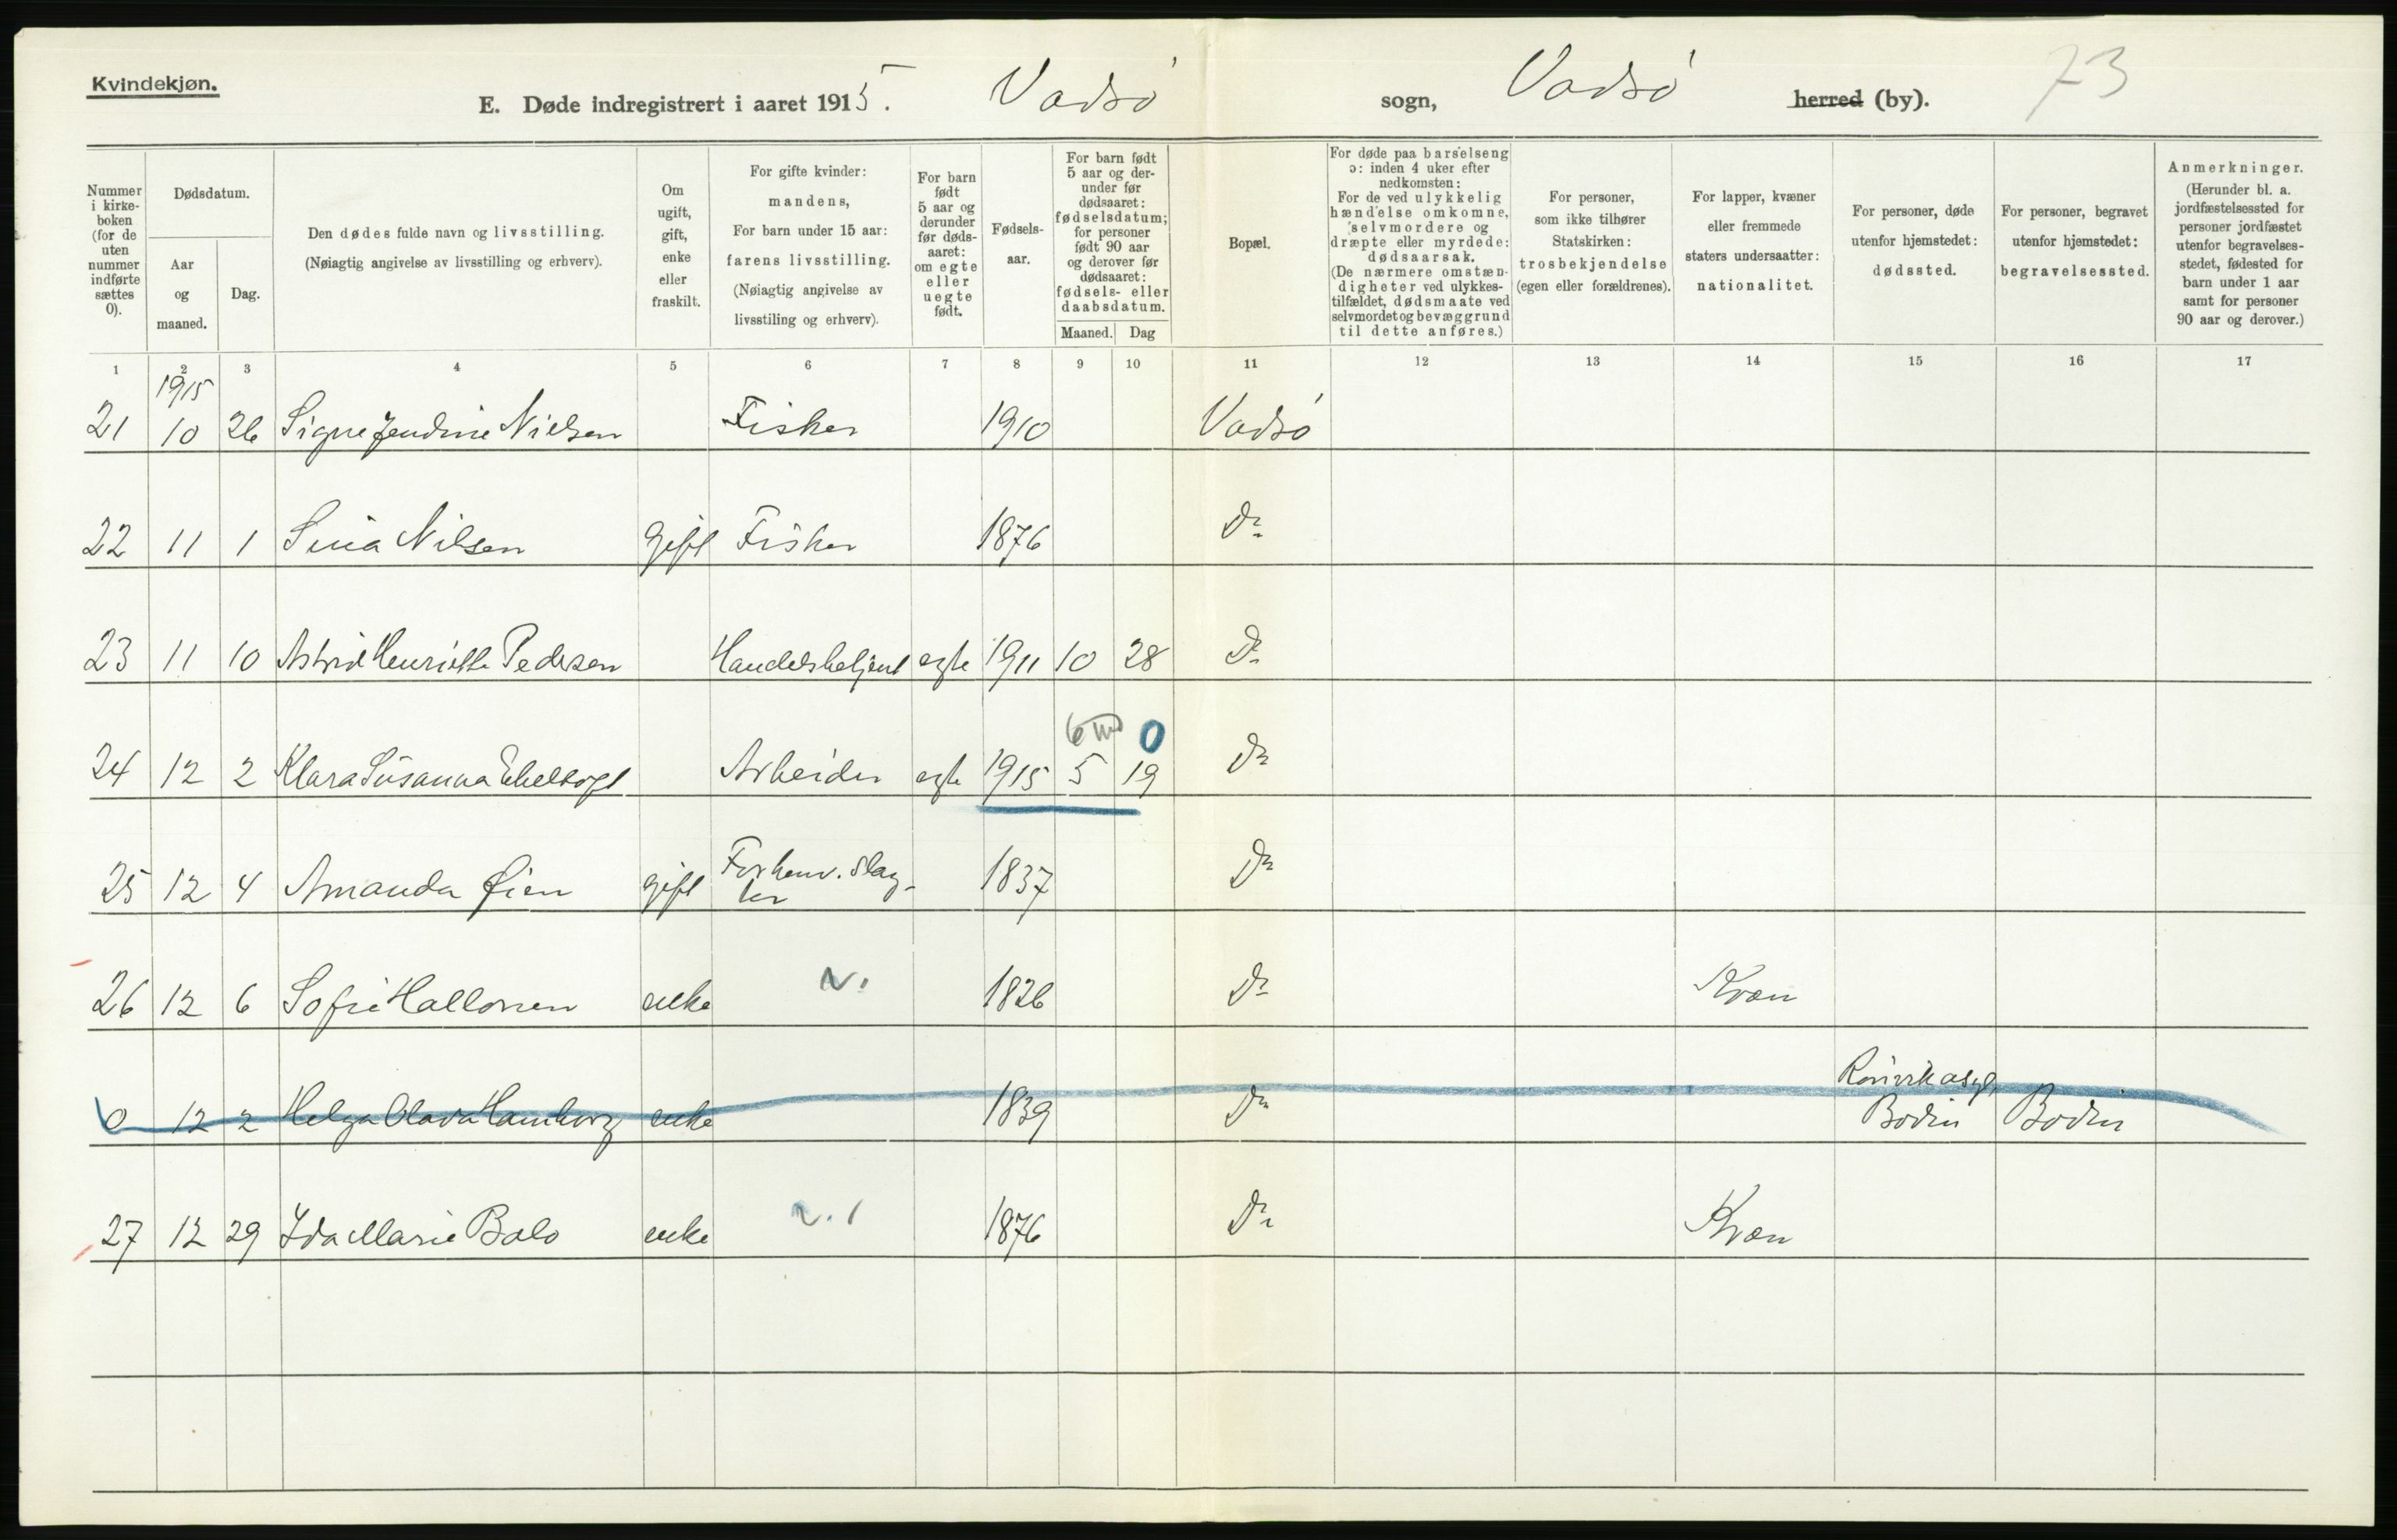 Kvindekjøn.
E. Døde indregistrert i aaret 1915. Vadsø sogn, Vadsø herred (by). 73
Nummer i kirke-boken (for de uten nummer indførte sættes 0).
Dødsdatum.
Aar og maaned.
Dag.
Den dødes fulde navn og livsstilling.
(Nøiagtig angivelse av livsstilling og erhverv).
Om ugift, gift, enke eller fraskilt.
For gifte kvinder: mandens,
For barn under 15 aar: farens livsstilling.
(Nøiagtig angivelse av livsstiling og erhverv).
For barn født 5 aar og derunder før døds-aaret: om egte eller uegte født.
Fødsels-aar.
For barn født 5 aar og der-under før dødsaaret: fødselsdatum; for personer født 90 aar og derover før dødsaaret: fødsels- eller daabsdatum.
Maaned. Dag
Bopæl.
For døde paa barselseng ɔ: inden 4 uker efter nedkomsten:
For de ved ulykkelig hændelse omkomne, selvmordere og dræpte eller myrdede: dødsaarsak.
(De nærmere omstæn-digheter ved ulykkes-tilfældet, dødsmaate ved selvmordet og bevæggrund til dette anføres.)
For personer, som ikke tilhører Statskirken: trosbekjendelse (egen eller forældrenes).
For lapper, kvæner eller fremmede staters undersaatter: nationalitet.
For personer, døde utenfor hjemstedet: dødssted.
For personer, begravet utenfor hjemstedet: begravelsessted.
Anmerkninger.
(Herunder bl. a. jordfæstelsessted for personer jordfæstet utenfor begravelses-stedet, fødested for barn under 1 aar samt for personer 90 aar og derover.)
1 2 3 4 5 6 7 8 9 10 11 12 13 14 15 16 17
1915
21 10 26 Signe Jendine Nielsen Fisker 1910 Vadsø
22 11 1 Sina Nilsen gift Fisker 1876 Do
23 11 10 Astrid Henriette Pedersen Handelsbetjent egte 1911 10 28 Do
6 m 0
24 12 2 Klara Susanna egte Arbeider 1915 5 19 Do
25 12 4 Amanda Øien gift Forhenv. slag-ter 1837 Do
26 12 6 Sofie Hallonen enke N. 1826 Do Kvæn
0 12 2 Helga Olava Hamborg enke 1839 Do Rønvik asyl, Bodin Bodin
27 12 29 Ida Marie Balo enke N. 1 1876 Do Kvæn